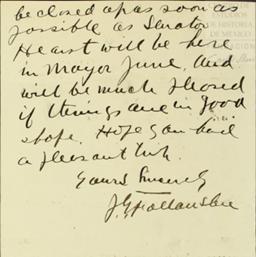 be closed up as soon as
possible as Senator
Hearst will be here
in May or June. and
will be much pleased
if things are in good
shape. Hope you had
a pleasant trip.
Yours Sincerely
J. G. Follansbee
ESTUDIOS
DE HISTORIA
DE MEXICO